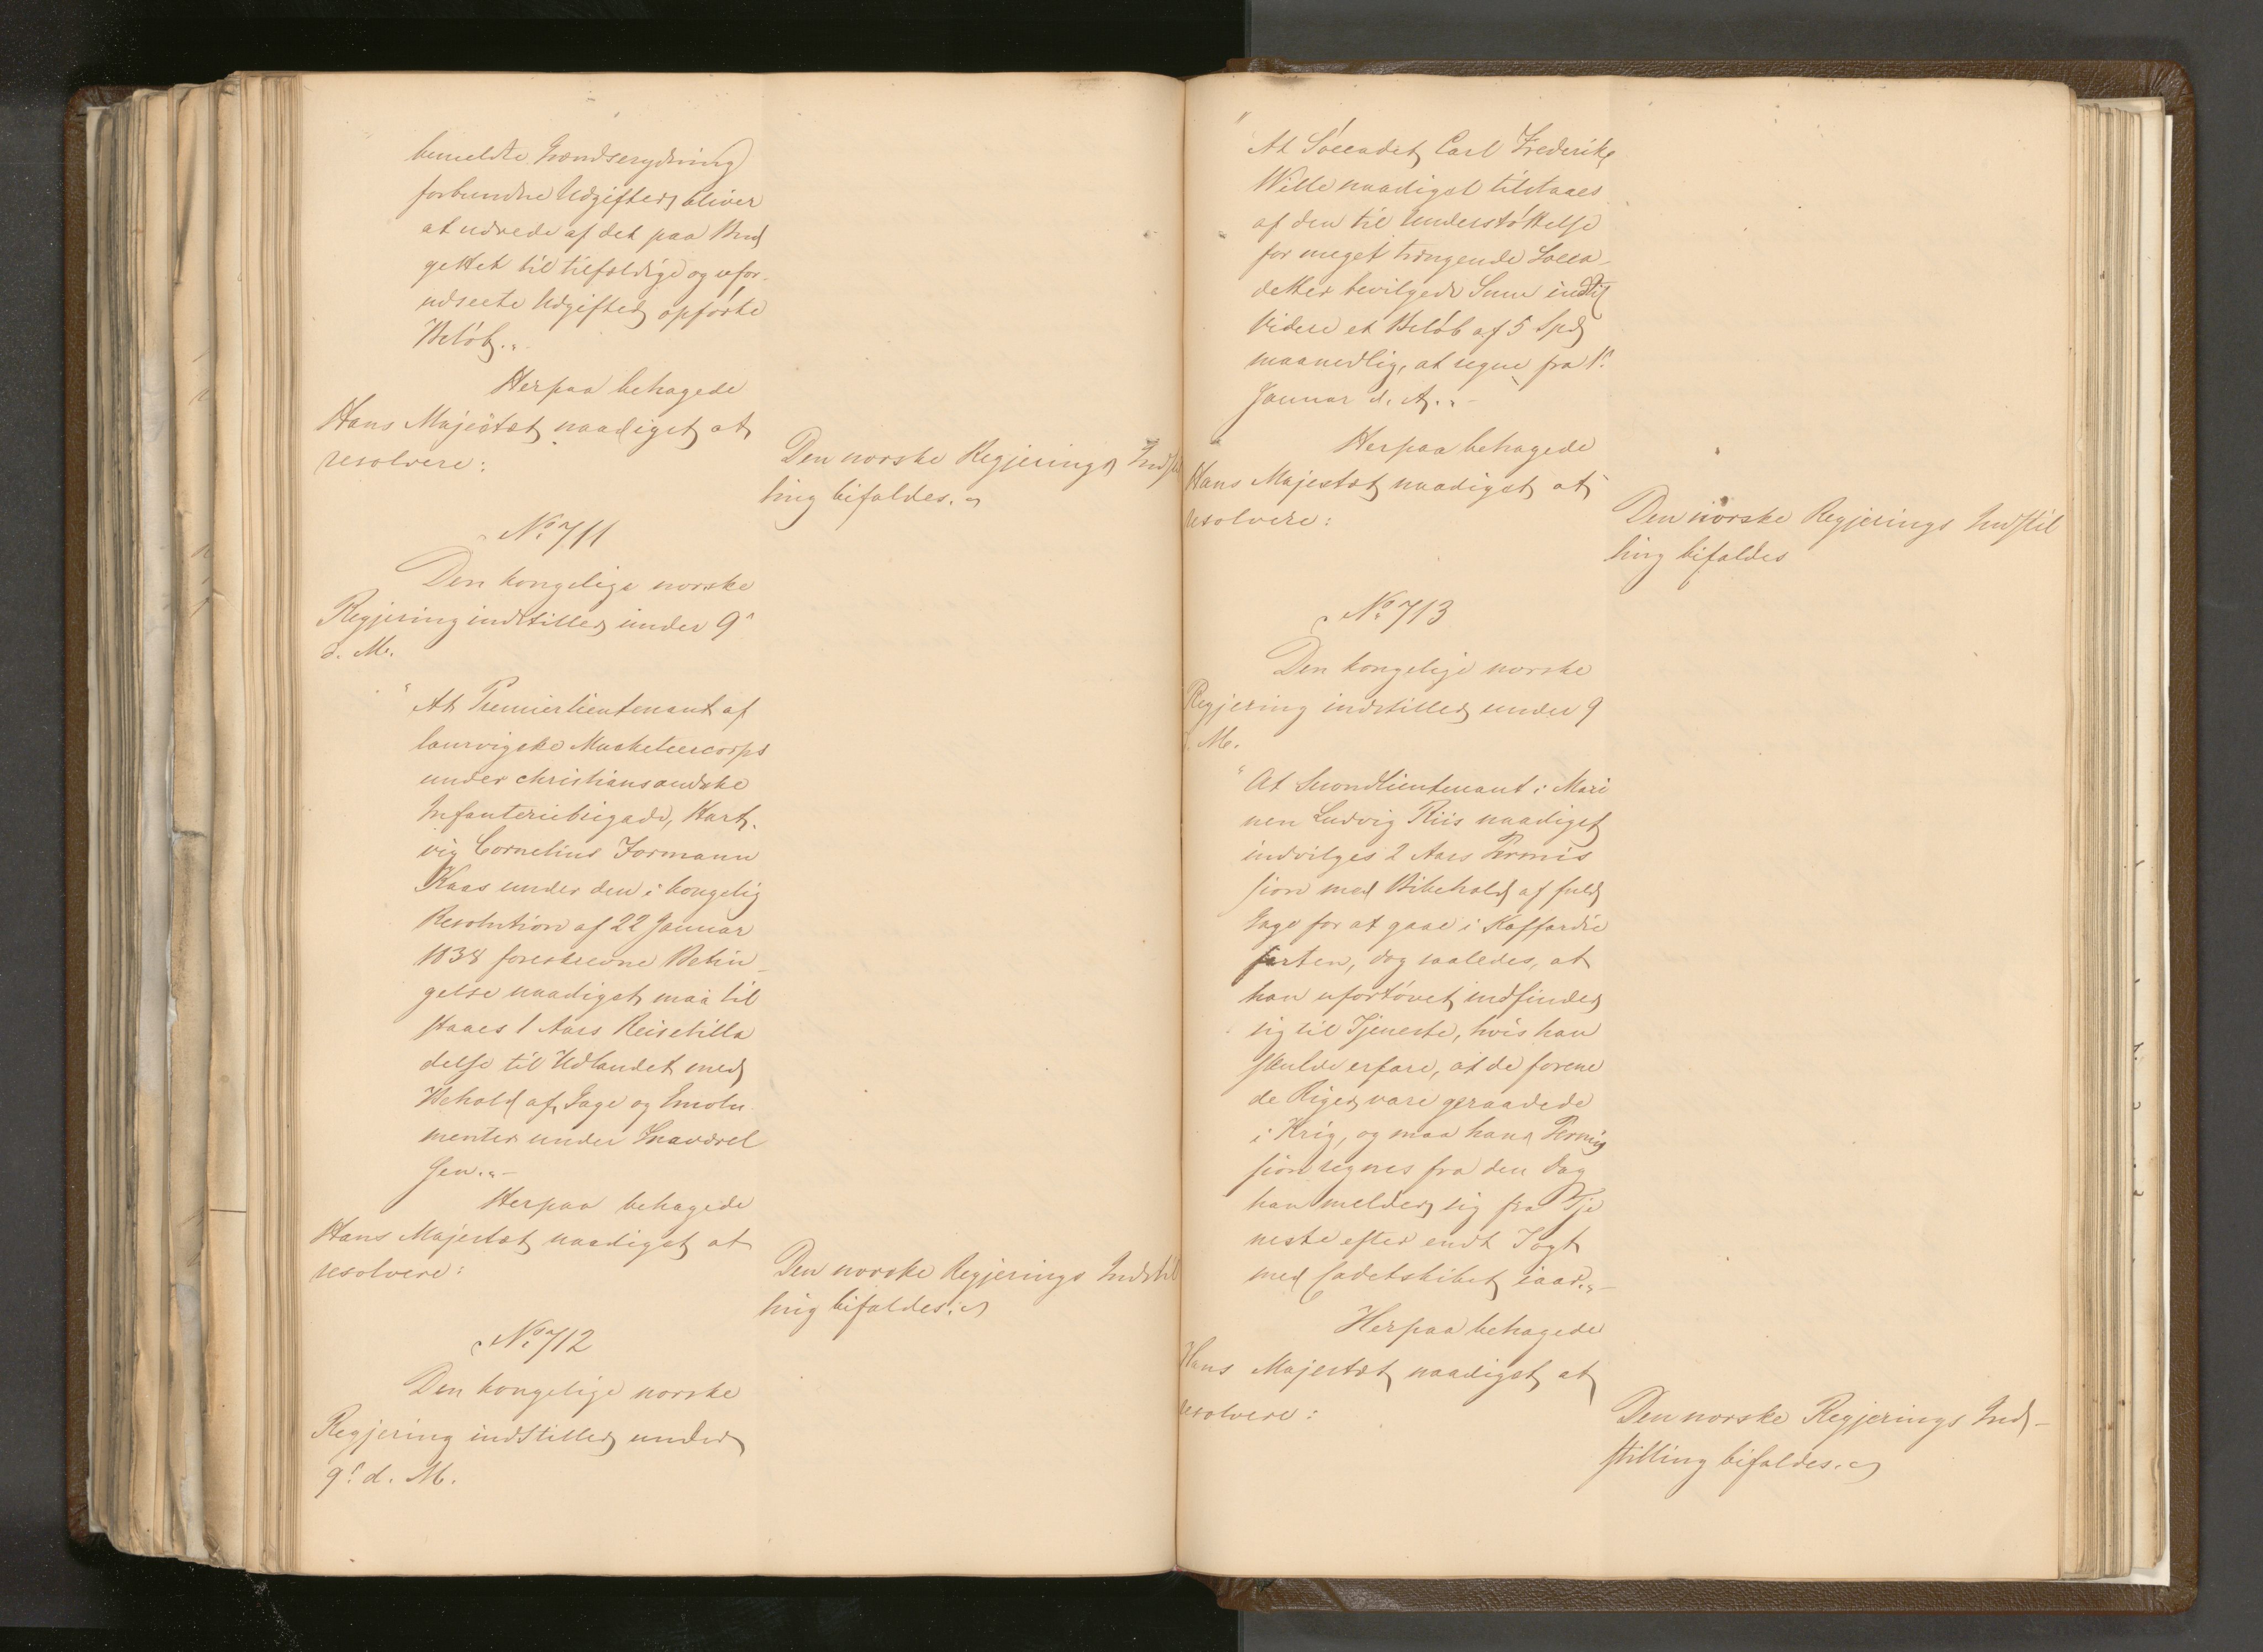 bemeldte Grændserydning
forbundne Udgifter bliver
at udrede af det paa Bud
gettet til tilfældige og ufor-
udseete Udgifter opførte
Beløb.„
Herpaa behagede
Hans Majestæt naadigst at
resolvere:
Den norske Regjerings Indstil
ling bifaldes.
No. 711
Den kongelige norske
Regjering indstiller under 9
d. M.
"At Premierlieutenant af
laurvigske Musketeercorps
under christiansandske
Infanteriebrigade, Hart-
vig Cornelius Jormann
Kaas under den i kongelig
Resolution af 22 Januar
1838 foreskrevne Betin-
gelse naadigst maa til
staaes 1 Aars Reisetilla
delse til Udlandet med
Behold af Gage og Emolu
menter under Fraværel
sen.„-
Herpaa behagede
Hans Majestæt naadigst at
resolvere:
Den norske Regjerings Indstil
ling bifaldes.
No. 712
Den kongelige norske
Regjering indstiller under
9. d. M.
"At Søecadet Carl Frederik
Wille naadigst tilstaaes
af den til Understøttelse
for meget trængende Søeca-
detter bevilgede Sum indtil
Videre et Beløb af 5 Spd
maanedlig, at regne fra 1.
Januar d. A.„-
Herpaa behagede
Hans Majestæt naadigst at
resolvere:
Den norske Regjerings Indstil
ling bifaldes
No. 713
Den kongelige norske
Regjering indstiller under 9
d. M.
"At Secondlieutenant i Mari
nen Ludvig Riis naadigst
indvilges 2 Aars Permis
sion med Bibehold af fuld
Gage for at gaae i Koffardie
farten, dog saaledes, at
han ufortøvet indfinder
sig til Tjeneste, hvis han
skulde erfare, at de forene
de Riger vare geraadede
i Krig, og maa hans Permis
sion regnes fra den Dag
han melder sig fra Tje
neste efter endt Togt
med Cadetskibet iaar.„-
Herpaa behagede
Hans Majestæt naadigst at
resolvere:
Den norske Regjerings Ind-
stilling bifaldes.